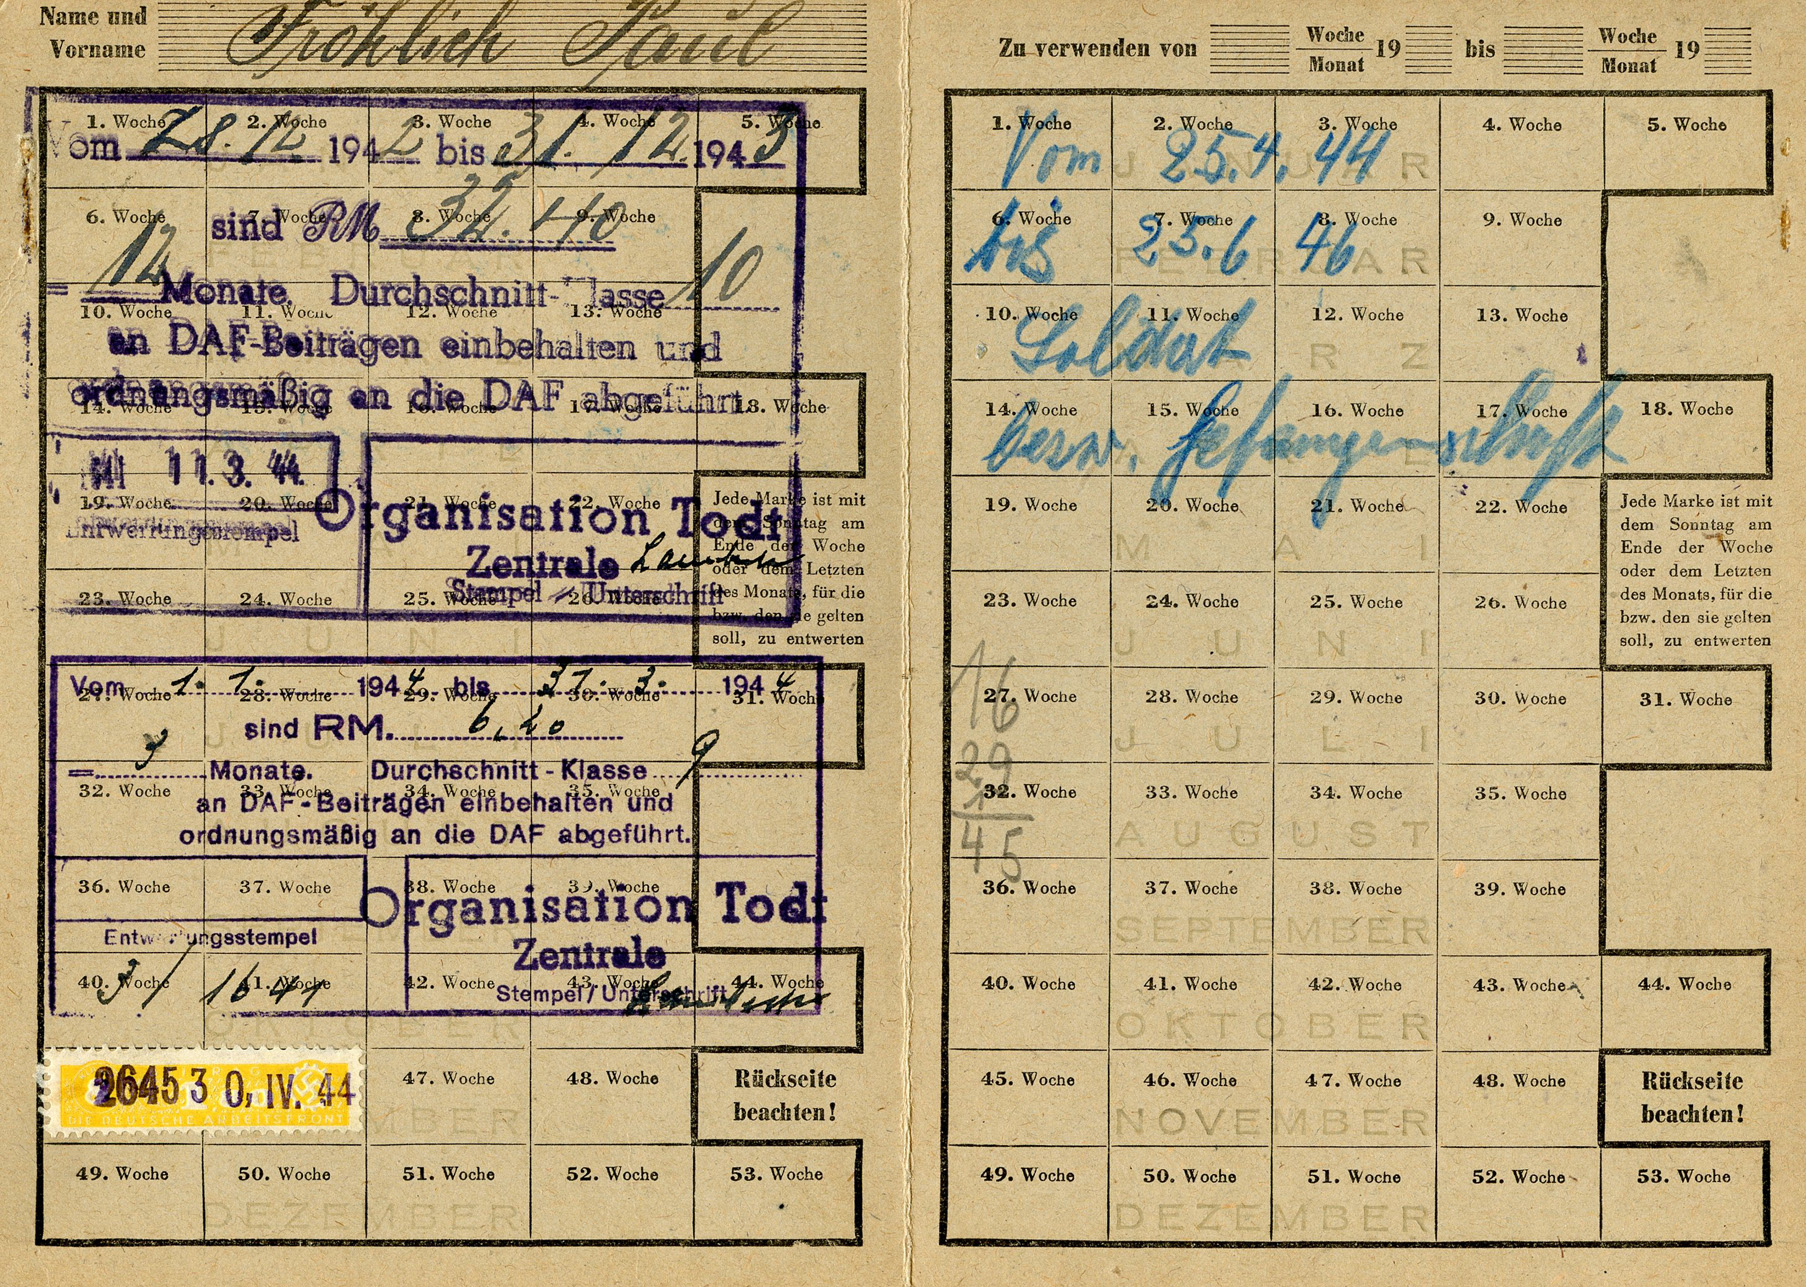 Name und
Vorname
Fröhlich Paul
1. Woche 2. Woche 3. Woche 4. Woche 5. Woche
Vom 28. 12. 1942 bis 31. 12. 1943
6. Woche 7. Woche 8. Woche 9. Woche
sind RM 32.40
= 12 Monate. Durchschnitt-Klasse 10
10. Woche 11. Woche 12. Woche 13. Woche
an DAF-Beiträgen einbehalten und
ordnungsmäßig an die DAF abgeführt.
14. Woche 15. Woche 16. Woche 17. Woche 18. Woche
11. 3. 44.
19. Woche 20. Woche 21. Woche 22. Woche
Entwertungsstempel
Organisation Todt
Zentrale
Stempel / Unterschrift
23. Woche 24. Woche 25. Woche 26. Woche
Jede Marke ist mit
dem Sonntag am
Ende der Woche
oder dem Letzten
des Monats, für die
bzw. den sie gelten
soll, zu entwerten
JUNI
Vom 1. 1. 1944 bis 31. 3. 1944
27. Woche 28. Woche 29. Woche 30. Woche 31. Woche
sind RM. 6,20
JULI
= 3 Monate. Durchschnitt-Klasse 9
32. Woche 33. Woche 34. Woche 35. Woche
an DAF-Beiträgen einbehalten und
ordnungsmäßig an die DAF abgeführt.
36. Woche 37. Woche 38. Woche 39. Woche
Organisation Todt
Entwertungsstempel
Zentrale
40. Woche 41. Woche 42. Woche 43. Woche 44. Woche
Stempel / Unterschrift
OKTOBER
26453 0, IV. 44
DIE DEUTSCHE ARBEITSFRONT
47. Woche 48. Woche
Rückseite
beachten!
49. Woche 50. Woche 51. Woche 52. Woche 53. Woche
DEZEMBER
Zu verwenden von Woche Monat 19 bis Woche Monat 19
1. Woche 2. Woche 3. Woche 4. Woche 5. Woche
JANUAR
Vom 25.4. 44
6. Woche 7. Woche 8. Woche 9. Woche
FEBRUAR
bis 25.6 46
10. Woche 11. Woche 12. Woche 13. Woche
Soldat
14. Woche 15. Woche 16. Woche 17. Woche 18. Woche
bezw. Gefangenschaft
19. Woche 20. Woche 21. Woche 22. Woche
MAI
23. Woche 24. Woche 25. Woche 26. Woche
Jede Marke ist mit
dem Sonntag am
Ende der Woche
oder dem Letzten
des Monats, für die
bzw. den sie gelten
soll, zu entwerten
JUNI
16
27. Woche 28. Woche 29. Woche 30. Woche 31. Woche
JULI
29
32. Woche 33. Woche 34. Woche 35. Woche
AUGUST
45
36. Woche 37. Woche 38. Woche 39. Woche
SEPTEMBER
40. Woche 41. Woche 42. Woche 43. Woche 44. Woche
OKTOBER
45. Woche 46. Woche 47. Woche 48. Woche
Rückseite
beachten!
NOVEMBER
49. Woche 50. Woche 51. Woche 52. Woche 53. Woche
DEZEMBER